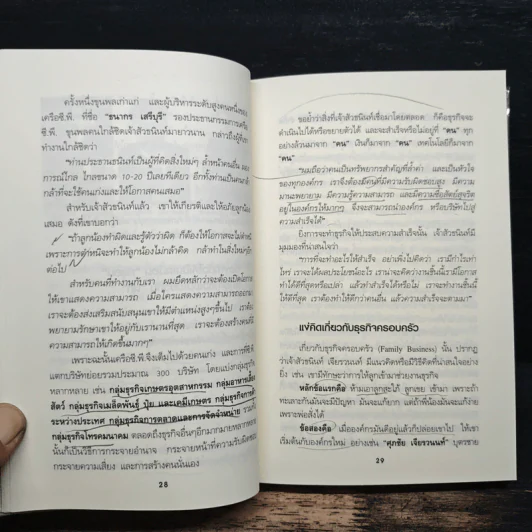 ครั้งหนึ่งขุนพลเก่าแก่ และผู้บริหารระดับสูงคนหนึ่งของ
เครือซี.พี. ที่ชื่อ "ธนากร เสรีบุรี" รองประธานกรรมการเครือ
ซี.พี. ขุนพลคนใกล้ชิดเจ้าสัวธนินท์มายาวนาน กล่าวถึงผู้ที่เขา
ทำงานใกล้ชิดว่า
"ท่านประธานธนินท์เป็นผู้ที่คิดสิ่งใหม่ๆ ล้ำหน้าคนอื่น มอง
การณ์ไกล ไกลขนาด 10-20 ปีเลยทีเดียว อีกทั้งท่านเป็นคน
กล้าที่จะใช้คนเก่งและให้โอกาสคนเสมอ"
สำหรับเจ้าสัวธนินท์แล้ว เขาให้เกียรติและให้อภัยลูกน้อง
เสมอ ดังที่เขาบอกว่า
"ถ้าลูกน้องทำผิดและรู้ตัวว่าผิด ก็ต้องให้โอกาสและไม่ตำหนิ
เพราะการตำหนิจะทำให้ลูกน้องไม่กล้าคิด กล้าทำในสิ่งใหม่ๆ อีก
ต่อไป
สำหรับคนที่ทำงานกับเรา ผมยึดหลักว่าจะต้องเปิดโอกาส
ให้เขาแสดงความสามารถ เมื่อใครแสดงความสามารถออกมา
เราจะต้องส่งเสริมสนับสนุนเขาให้มีตำแหน่งสูงๆ ขึ้นไป เราต้อง
พยายามรักษาเขาให้อยู่กับเรานานที่สุด เราจะต้องสร้างคนมี
ความสามารถให้เกิดขึ้นมากๆ"
เพราะฉะนั้นเครือซี.พี.จึงเต็มไปด้วยคนเก่ง และการที่ซี.พี.
แตกบริษัทย่อยรวมประมาณ 300 บริษัท โดยแบ่งกลุ่มธุรกิจ
หลากหลาย เช่น กลุ่มธุรกิจเกษตรอุตสาหกรรม กลุ่มอาหารเลี้ยง
สัตว์ กลุ่มธุรกิจเมล็ดพันธุ์ ปุ๋ย และเคมีเกษตร กลุ่มธุรกิจการค้า
ระหว่างประเทศ กลุ่มธุรกิจการตลาดและการจัดจำหน่าย รวมทั้ง
กลุ่มธุรกิจโทรคมนาคม ตลอดถึงธุรกิจอื่นๆ อีกมากมายหลากหลาย
ก็เป็นวิธีการกระจายอำนาจ กระจายหน้าที่ความรับผิดชอบ
กระจายความเสี่ยง และการสร้างคนนั่นเอง
28
ขอย้ำว่าสิ่งที่เจ้าสัวธนินท์เชื่อมาโดยตลอด ก็คือธุรกิจจะ
ดำเนินไปได้หรือขยายตัวได้ และจะสำเร็จหรือไม่อยู่ที่ "คน" ทุก
อย่างล้วนมาจาก "คน" เงินก็มาจาก "คน" เทคโนโลยีก็มาจาก
"คน"
"ผมถือว่าคนเป็นทรัพยากรสำคัญที่ล้ำค่า และเป็นหัวใจ
ของทุกองค์กร เราจึงต้องมีคนที่มีความรับผิดชอบสูง มีความ
มานะพยายาม มีความรู้ความสามารถ และมีความซื่อสัตย์สุจริต
อยู่ในองค์กรให้มากๆ จึงจะสามารถนำองค์กร หรือบริษัทไปสู่
ความสำเร็จได้"
ยิ่งการจะทำธุรกิจให้ประสบความสำเร็จนั้น เจ้าสัวธนินท์มี
มุมมองที่น่าสนใจว่า
"การที่จะทำอะไรให้สำเร็จ อย่าเพิ่งไปคิดว่า เรามีกำไรเท่า
ไหร่ เราจะได้ผลประโยชน์อะไร เราน่าจะคิดว่างานชิ้นนี้เรามีโอกาส
ทำได้ดีที่สุดหรือเปล่า แล้วทำได้สำเร็จไหม เราจะทำงานชิ้นนี้
ให้ดีที่สุด เราต้องทำให้ดีกว่าคนอื่น แล้วความสำเร็จจะตามมา"
แง่คิดเกี่ยวกับธุรกิจครอบครัว
เกี่ยวกับธุรกิจครอบครัว (Family Business) นั้น ปรากฏ
ว่าเจ้าสัวธนินท์ เจียรวนนท์ มีแนวคิดหรือมีวิธีคิดที่น่าสนใจอย่าง
ยิ่ง เช่น เขามีทักษะว่าการให้ลูกเข้ามาช่วยงานธุรกิจ
หลักข้อแรกคือ ห้ามเอาลูกสะใภ้ ลูกเขย เข้ามา เพราะถ้า
ทะเลาะกันมันจะมีปัญหา มันจะแก้ยาก แต่ถ้าพี่น้องมันจะแก้ง่าย
เพราะพ่อสั่งได้
ข้อสองคือ เมื่อองค์กรมันดีอยู่แล้วก็ปล่อยเขาไป ให้เขา
เริ่มต้นกับองค์กรใหม่ อย่างเช่น "ศุภชัย เจียรวนนท์" บุตรชาย
29